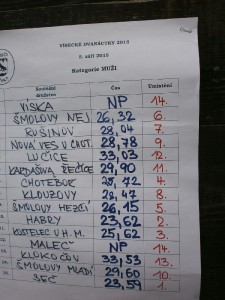 VÍSECKÉ DVANÁCTKY 2015
5. září 2015
Kategorie MUŽI
Soutěžní družstvo Čas Umístění
VÍSKA NP 14.
ŠMOLOVY NEJ 26,32 6.
RUŠINOV 28,04 7.
NOVÁ VES U CHOT. 28,78 9.
LUČICE 33,03 12.
KARDAŠOVA ŘEČICE 29,90 11.
CHOTĚBOŘ 25,72 4.
KLOUZOVY 28,47 8.
ŠMOLOVY HEZČÍ 26,15 5.
HABRY 23,62 2.
KOSTELEC U H.M. 25,62 3.
MALEČ NP 14.
KLOKOČOV 33,53 13.
ŠMOLOVY MLADÍ 29,60 10.
SEČ 23,59 1.